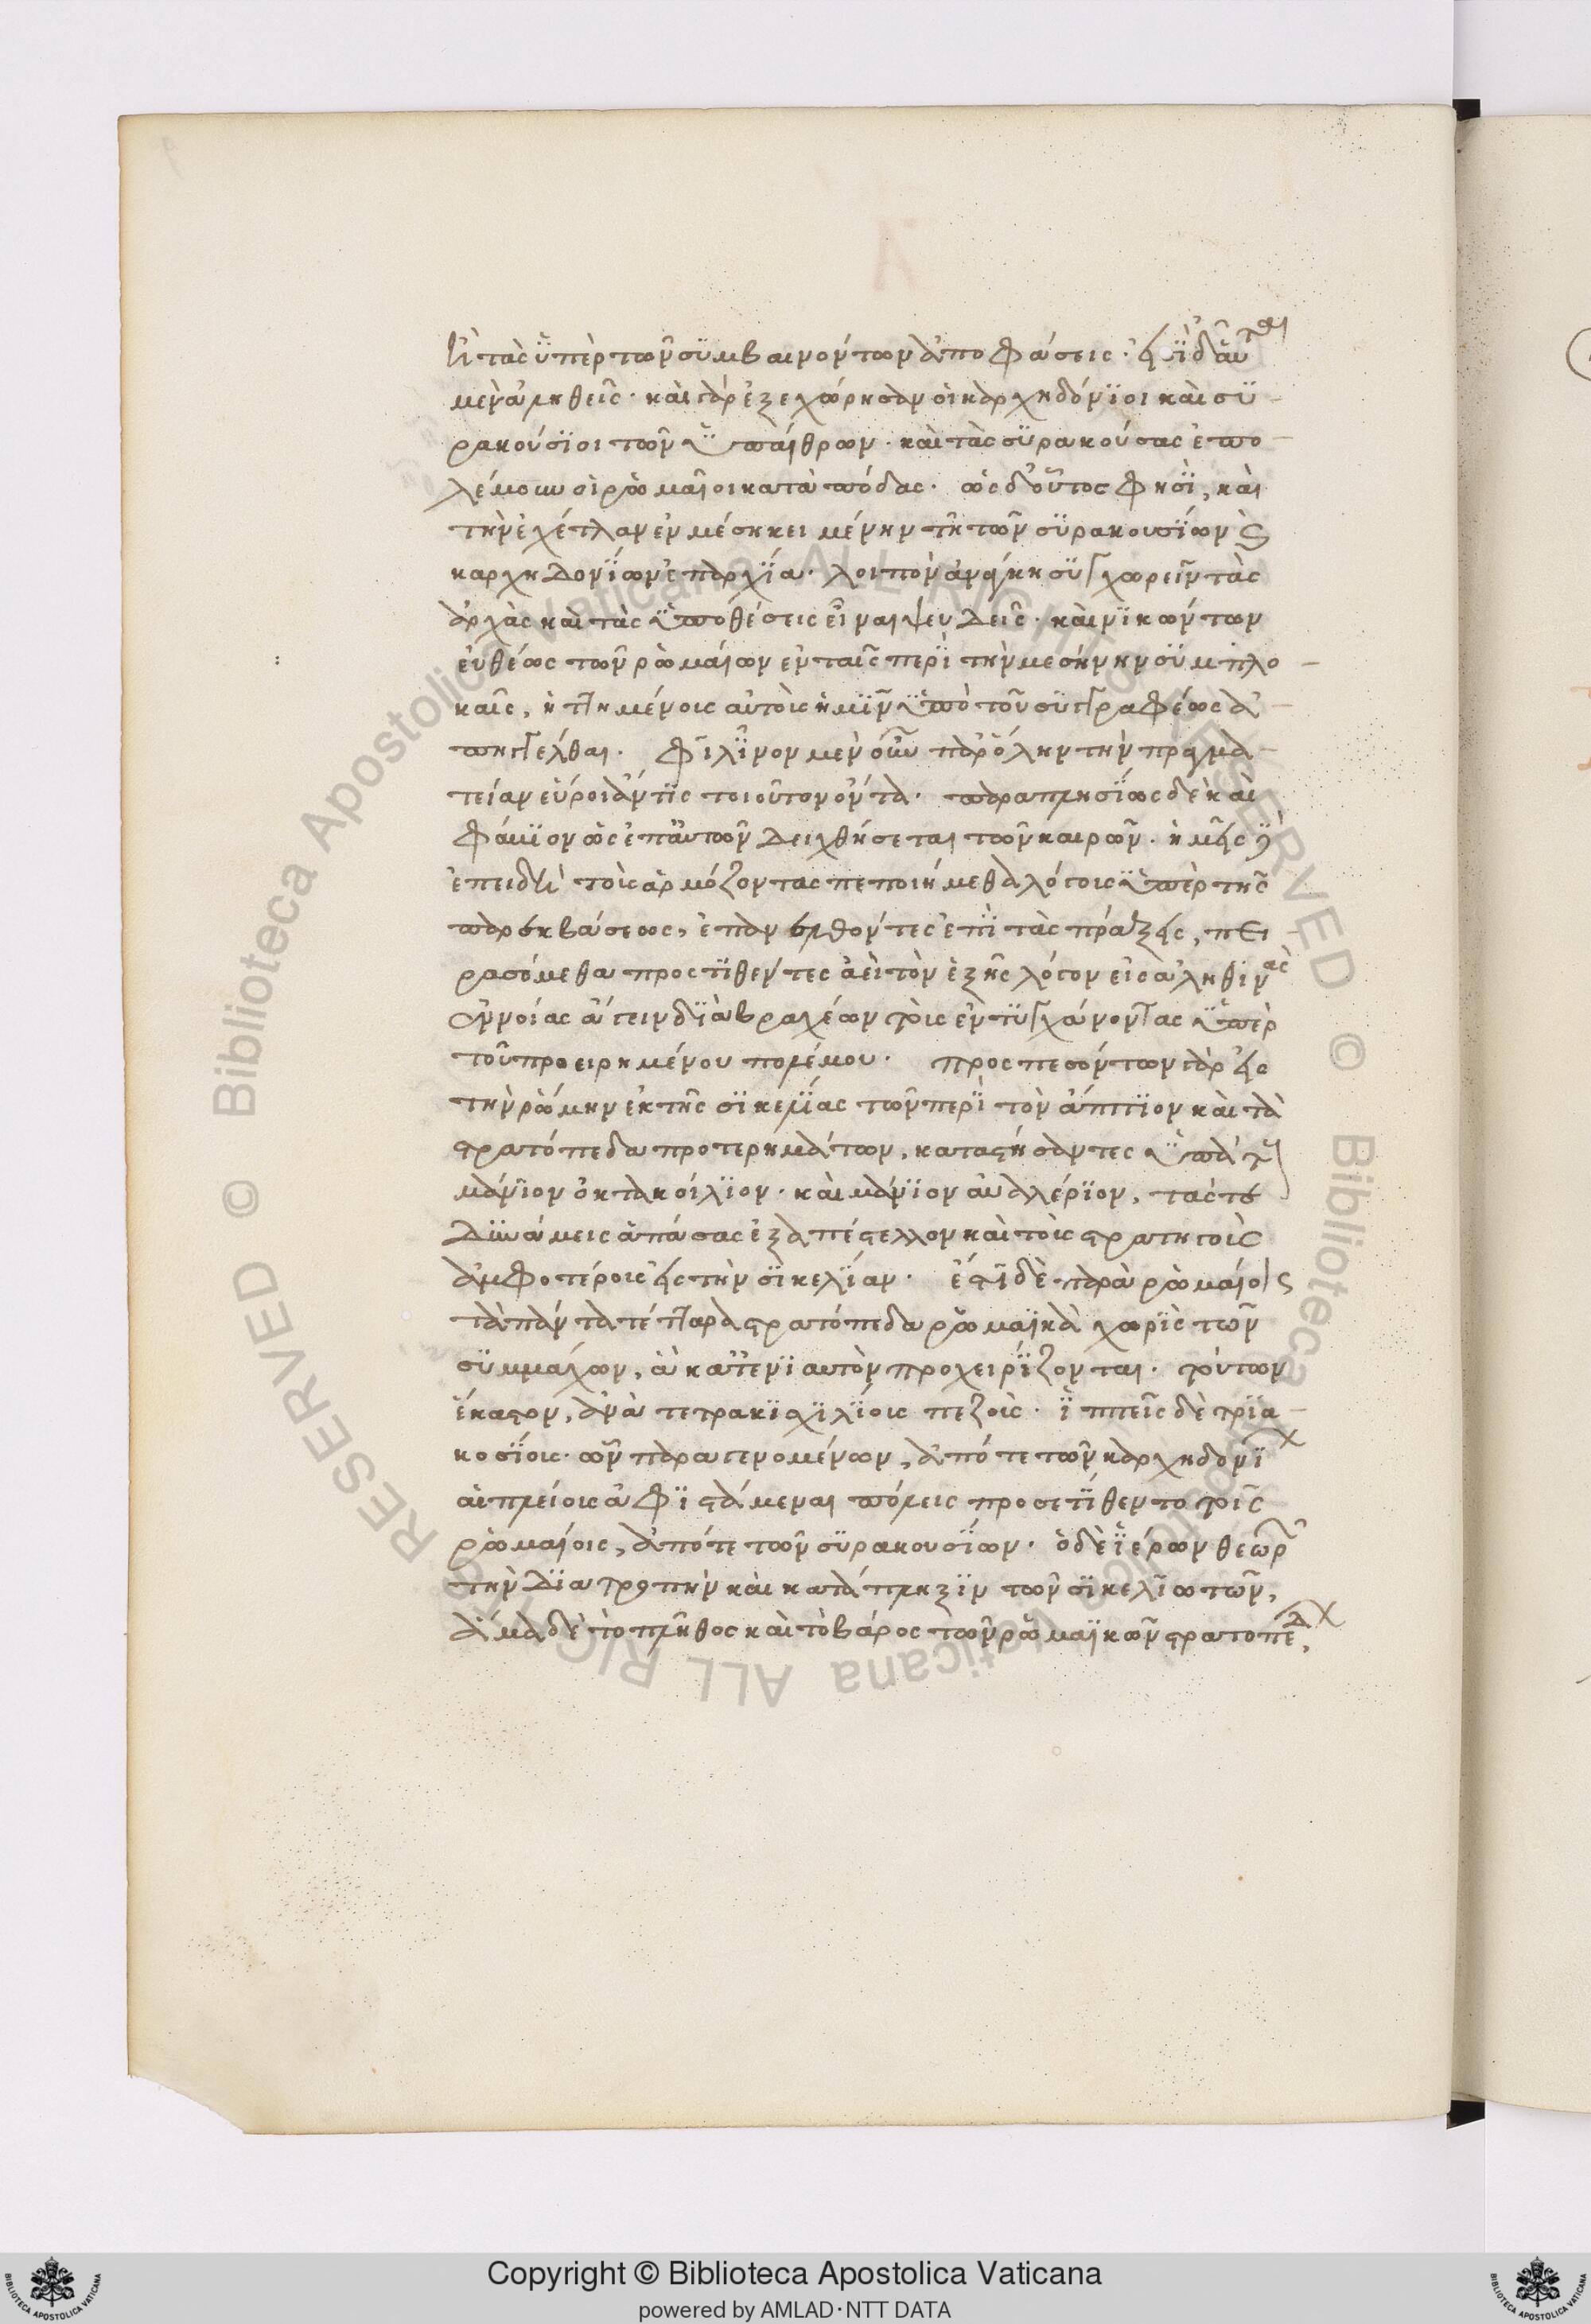 ἢ τὰς ὑπὲρ τῶν συμβαινόντων ἀποφάσεις· εἰ δ' αὗται
μὲν ἀληθεῖς· καὶ γὰρ ἐξεχώρησαν οἱ καρχηδόνιοι καὶ συ
ρακούσιοι τῶν ὑπαίθρων· καὶ τὰς συρακούσας ἐπο
λέμουν οἱ ρωμαῖοι κατὰ πόδας· ὡς δ' οὗτος φησὶ, καὶ
τὴν ἐχέτλαν ἐν μέσῃ κειμένην τῇ τῶν συρακουσίων καὶ
καρχηδονίων ἐπαρχία· λοιπὸν ἀνάγκη συγχωρεῖν τὰς
ἀρχὰς καὶ τὰς ὑποθέσεις εἶναι ψευδεῖς· καὶ νικώντων
εὐθέως τῶν ρωμαίων ἐν ταῖς περὶ τὴν μεσήνην συμπλο
καῖς, ἡττημένοις αὐτοὺς ἡμῖν ὑπὸ τοῦ συγγραφέως ἀ
πηγγέλθαι. Φιλῖνον μὲν οὖν παρ' ὅλην τὴν πραγμα
τείαν εὕροι ἄν τις τοιοῦτον ὄντα· παραπλησίως δὲ καὶ
Φάμιον ὡς ἐπ' αὐτῶν δειχθήσεται τῶν καιρῶν. ἡμεῖς δὲ
ἐπειδὴ τοὺς ἁρμόζοντας πεποιήμεθα λόγους ὑπὲρ τῆς
παρεκβάσεως, ἐπανελθόντες ἐπὶ τὰς πράξεις, πει
ρασόμεθα προστιθέντες ἀεὶ τὸν ἑξῆς λόγον εἰς ἀληθινὰς
ἐννοίας ἄγειν διὰ βραχέων τοὺς ἐντυγχάνοντας ὑπὲρ
τοῦ προειρημένου πολέμου. προσπεσόντων γὰρ εἰς
τὴν ρώμην ἐκ τῆς σικελίας τῶν περὶ τὸν ἄππιον καὶ τὰ
στρατόπεδα προτερημάτων, καταστήσαντες ὑπάτους
μάνιον ὀκτακίλιον· καὶ μάνιον οὐαλέριον, τάς τε
δυνάμεις ἁπάσας ἐξαπέστελλον καὶ τοὺς στρατηγοὺς
ἀμφοτέρους εἰς τὴν σικελίαν. ἔστι δὲ παρὰ ρωμαίοις
τὰ πάντα τέτταρα στρατόπεδα ρωμαϊκὰ χωρὶς τῶν
συμμάχων, ἃ κατ' ἐνιαυτὸν προχειρίζονται. τούτων
ἕκαστον, ἀνὰ τετρακισχιλίους πεζοὺς· ἱππεῖς δὲ τρια
κοσίους· ὧν παραγενομένων, ἀπό τε τῶν καρχηδονίων
αἱ πλείους ἀφιστάμεναι πόλεις προσετίθεντο τοῖς
ρωμαίοις, ἀπό τε τῶν συρακουσίων. ὁ δὲ ἱέρων θεωρῶν
τὴν διατροπὴν καὶ κατάπληξιν τῶν σικελιωτῶν,
ἅμα δὲ τὸ πλῆθος καὶ τὸ βάρος τῶν ρωμαϊκῶν στρατοπέδων,
Copyright © Biblioteca Apostolica Vaticana
powered by AMLAD·NTT DATA